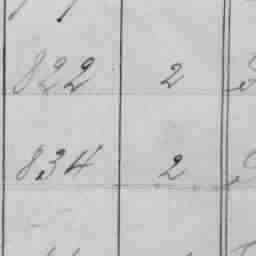 822 2
834 2